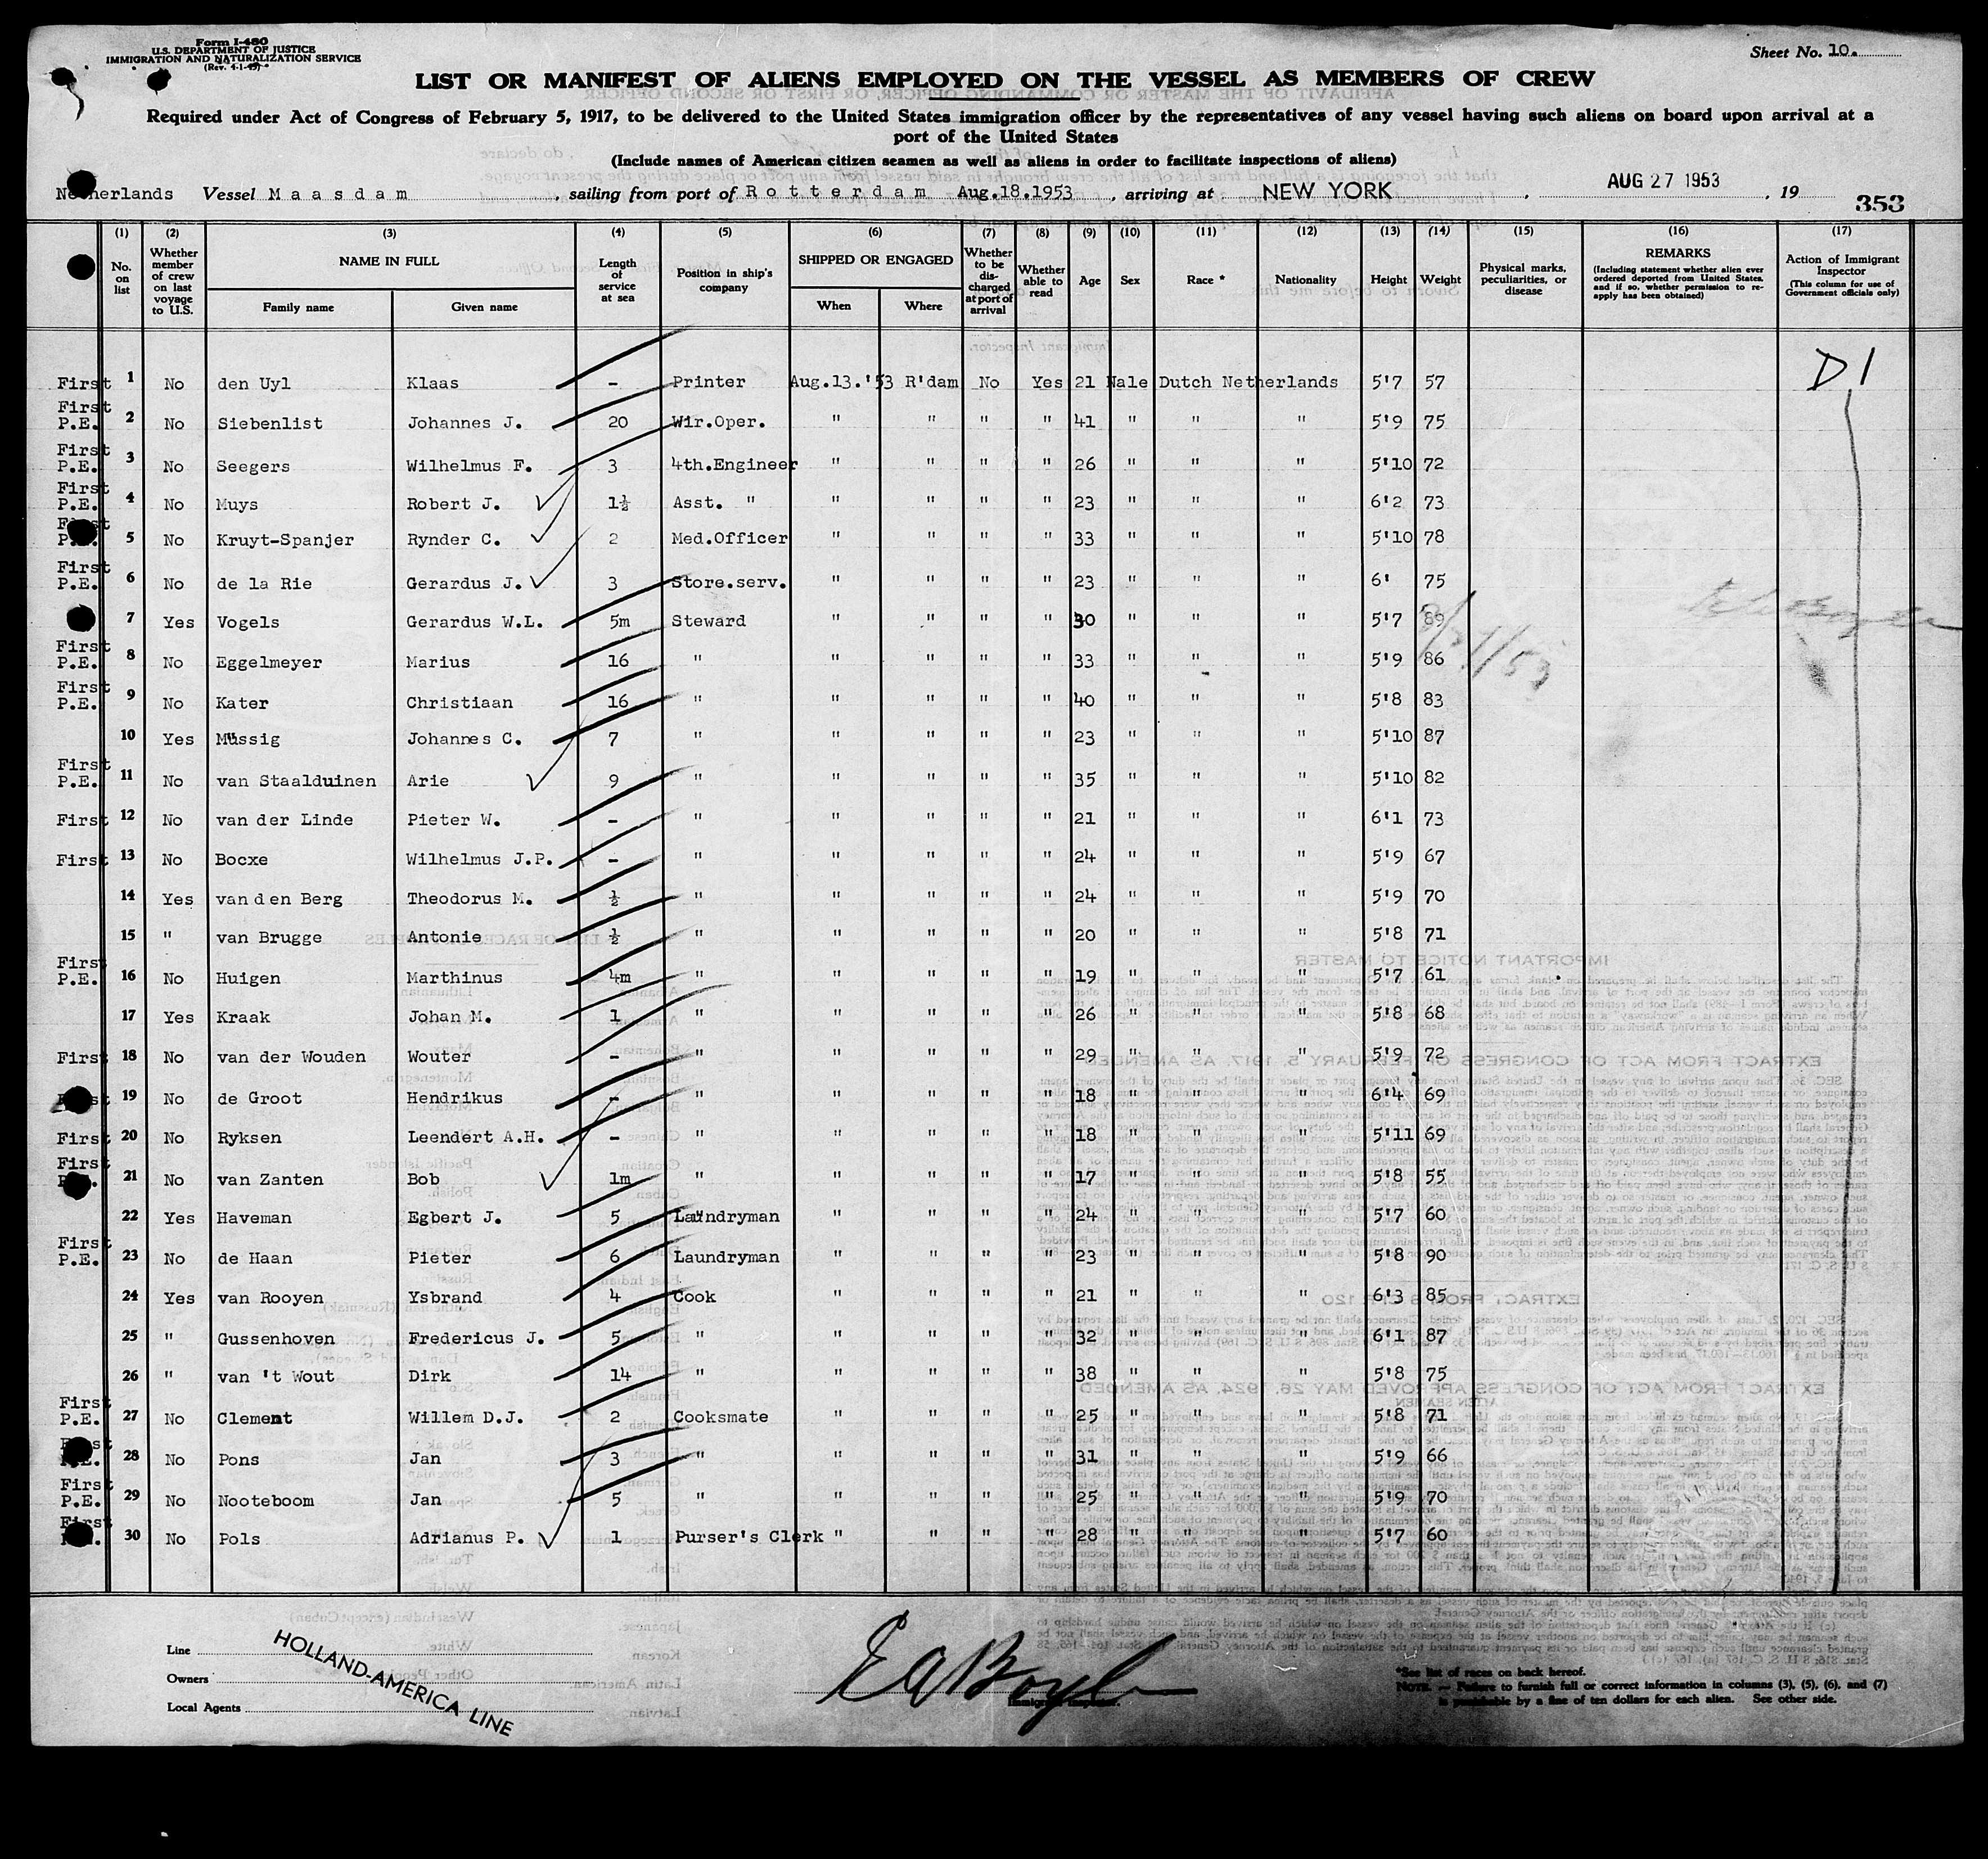 Form I-480
U.S. DEPARTMENT OF JUSTICE
IMMIGRATION AND NATURALIZATION SERVICE
(Rev. 4-1-45)
Sheet No. 10.
LIST OR MANIFEST OF ALIENS EMPLOYED ON THE VESSEL AS MEMBERS OF CREW
Required under Act of Congress of February 5, 1917, to be delivered to the United States immigration officer by the representatives of any vessel having such aliens on board upon arrival at a
port of the United States
(Include names of American citizen seamen as well as aliens in order to facilitate inspections of aliens)
Netherlands Vessel Maasdam, sailing from port of Rotterdam Aug.18.1953, arriving at NEW YORK, AUG 27 1953, 19
353
(1) (2) (3) (4) (5) (6) (7) (8) (9) (10) (11) (12) (13) (14) (15) (16) (17)
No. on list | Whether member of crew on last voyage to U.S. | NAME IN FULL Family name Given name | Length of service at sea | Position in ship's company | SHIPPED OR ENGAGED When Where | Whether to be discharged at port of arrival | Whether able to read | Age | Sex | Race * | Nationality | Height | Weight | Physical marks, peculiarities, or disease | REMARKS (Including statement whether alien ever ordered deported from United States, and if so, whether permission to re-apply has been obtained) | Action of Immigrant Inspector (This column for use of Government officials only)
First 1 No den Uyl Klaas - Printer Aug.13.'53 R'dam No Yes 21 Male Dutch Netherlands 5'7 57 D1
First P.E. 2 No Siebenlist Johannes J. 20 Wir.Oper. " " " " 41 " " " 5'9 75
First P.E. 3 No Seegers Wilhelmus F. 3 4th.Engineer " " " " 26 " " " 5'10 72
First P.E. 4 No Muys Robert J. 1½ Asst. " " " " " 23 " " " 6'2 73
First P.E. 5 No Kruyt-Spanjer Rynder C. 2 Med.Officer " " " " 33 " " " 5'10 78
First P.E. 6 No de la Rie Gerardus J. 3 Store.serv. " " " " 23 " " " 6' 75
7 Yes Vogels Gerardus W.L. 5m Steward " " " " 30 " " " 5'7 89
First P.E. 8 No Eggelmeyer Marius 16 " " " " " 33 " " " 5'9 86
8/27/53
First P.E. 9 No Kater Christiaan 16 " " " " " 40 " " " 5'8 83
10 Yes Müssig Johannes C. 7 " " " " " 23 " " " 5'10 87
First P.E. 11 No van Staalduinen Arie 9 " " " " " 35 " " " 5'10 82
First 12 No van der Linde Pieter W. - " " " " " 21 " " " 6'1 73
First 13 No Bocxe Wilhelmus J.P. - " " " " " 24 " " " 5'9 67
14 Yes van den Berg Theodorus M. ½ " " " " " 24 " " " 5'9 70
15 " van Brugge Antonie ½ " " " " " 20 " " " 5'8 71
First P.E. 16 No Huigen Marthinus 4m " " " " " 19 " " " 5'7 61
17 Yes Kraak Johan M. 1 " " " " " 26 " " " 5'8 68
First 18 No van der Wouden Wouter - " " " " " 29 " " " 5'9 72
First 19 No de Groot Hendrikus - " " " " " 18 " " " 6'4 69
First 20 No Ryksen Leendert A.H. - " " " " " 18 " " " 5'11 69
First 21 No van Zanten Bob 1m " " " " " 17 " " " 5'8 55
22 Yes Haveman Egbert J. 5 Laundryman " " " " 24 " " " 5'7 60
First P.E. 23 No de Haan Pieter 6 Laundryman " " " " 23 " " " 5'8 90
24 Yes van Rooyen Ysbrand 4 Cook " " " " 21 " " " 6'3 85
25 " Gussenhoven Fredericus J. 5 " " " " " 32 " " " 6'1 87
26 " van 't Wout Dirk 14 " " " " " 38 " " " 5'8 75
First P.E. 27 No Clement Willem D.J. 2 Cooksmate " " " " 25 " " " 5'8 71
First P.E. 28 No Pons Jan 3 " " " " " 31 " " " 5'9 66
First P.E. 29 No Nooteboom Jan 5 " " " " " 25 " " " 5'9 70
First 30 No Pols Adrianus P. 1 Purser's Clerk " " " " 28 " " " 5'7 60
Line
Owners
Local Agents
HOLLAND-AMERICA LINE
E A Boyle
Immigrant Inspector.
*See list of races on back hereof.
NOTE. — Failure to furnish full or correct information in columns (3), (5), (6), and (7)
is punishable by a fine of ten dollars for each alien. See other side.